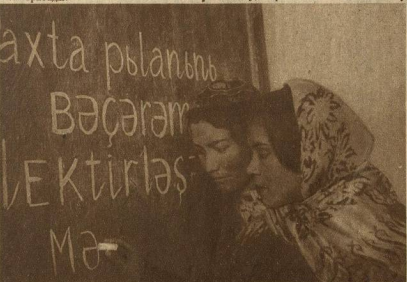 axta pьlanьnь
Bəçərəm
lEKtirləş
Mə